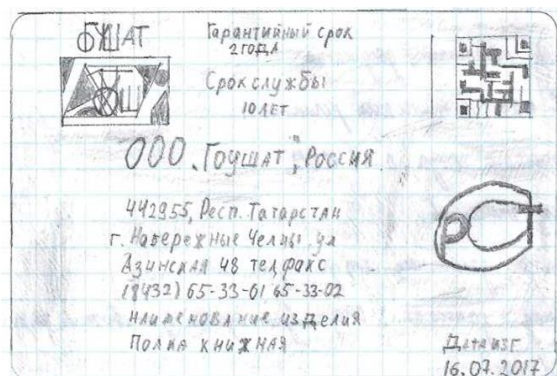 БУШАТ
Гарантийный срок
2 ГОДА
Срок службы
10 ЛЕТ
ООО. ГОУШАТ, РОССИЯ
442955, Респ. Татарстан
г. Набережные Челны, ул
Азинская 48 тел факс
(8432) 65-33-01 65-33-02
наименование изделия
Полка книжная
Дата изг
16.07.2017